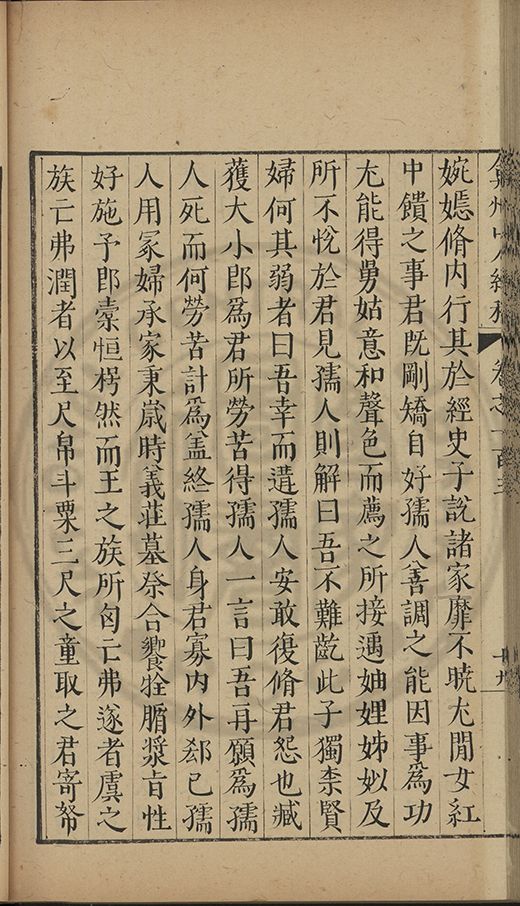 卷之一百三
十九
婉嫕脩內行其於經史子說諸家靡不曉尤閒女紅
中饋之事君既剛矯自好孺人善調之能因事為功
尤能得舅姑意和聲色而薦之所接遇妯娌姊姒及
所不悅於君見孺人則解曰吾不難齕此子獨柰賢
婦何其弱者曰吾幸而遘孺人安敢復脩君怨也臧
獲大小郎為君所勞苦得孺人一言曰吾再願為孺
人死而何勞苦計為蓋終孺人身君寡內外郄已孺
人用冢婦承家秉歲時義莊墓祭合饗牲腯漿旨性
好施予卽橐恒枵然而王之族所匃亡弗遂者虞之
族亡弗潤者以至尺帛斗粟三尺之童取之君寄帑